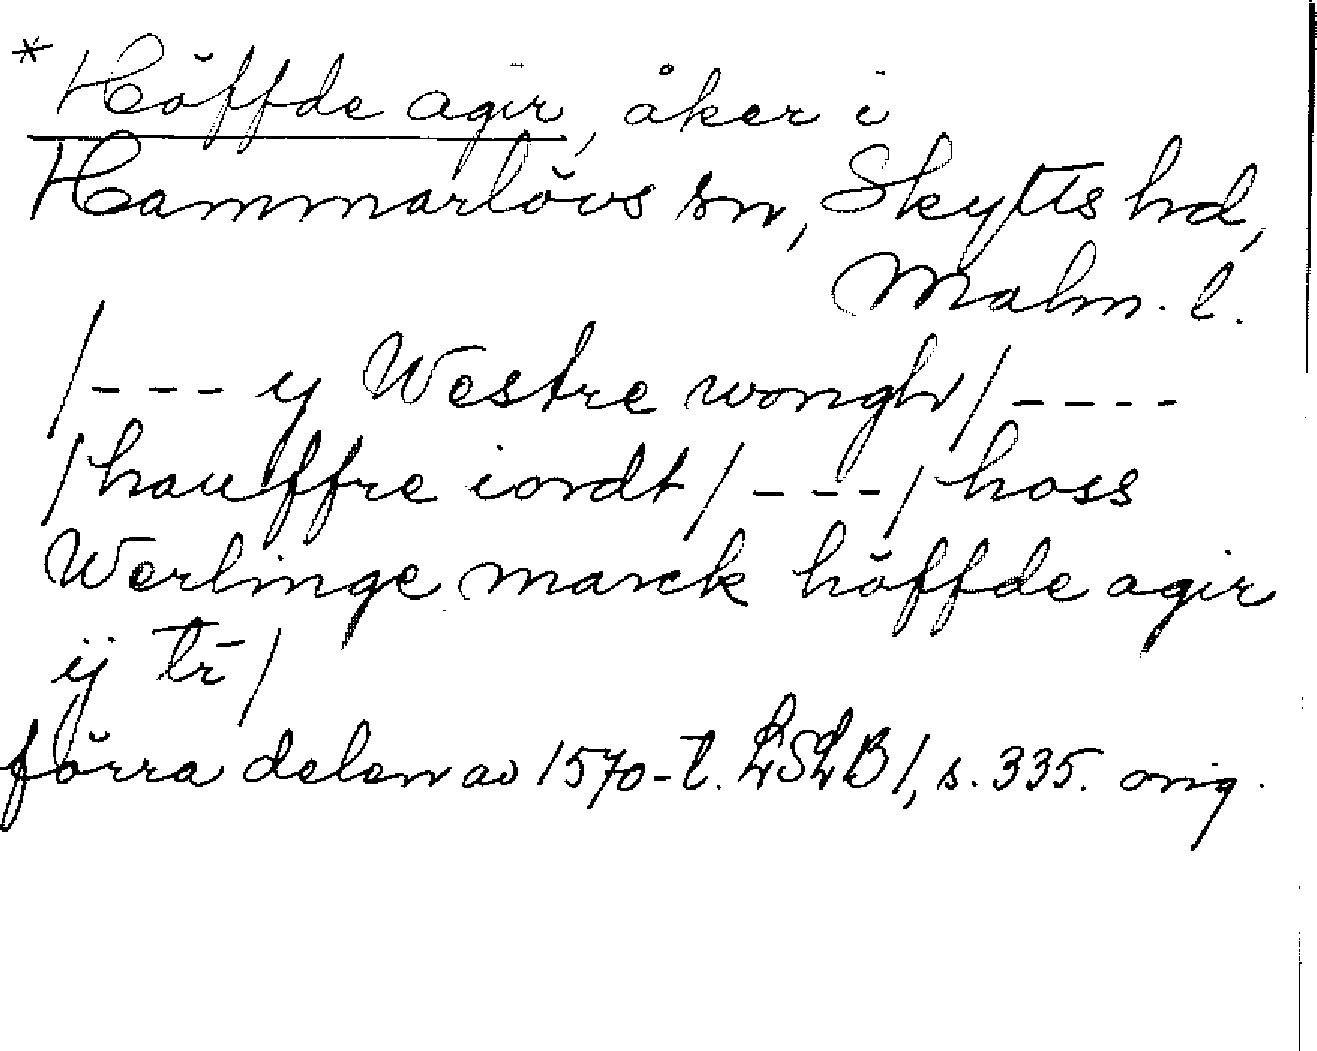 * Höffde agir, åker i
Hammarlövs sn, Skytts hd,
Malm. l.
/--- y Westre wongh/----
/hauffre iordt/---/hoss
Werlinge marck höffde agir
ij tr̄/
förra delen av 1570-t. LSLB1, s. 335. orig.